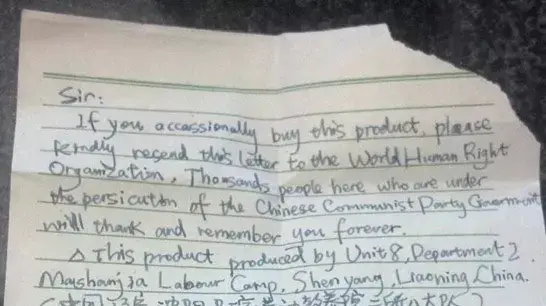 Sir:
If you occassionally buy this product, please
kindly resend this letter to the World Human Right
Organization. Thousands people here who are under
the persicution of the Chinese Communist Party Government
will thank and remember you forever.
△ This product produced by Unit 8, Department 2
Mashanjia Labour Camp, Shenyang, Liaoning, China.
(中国 辽宁 沈阳